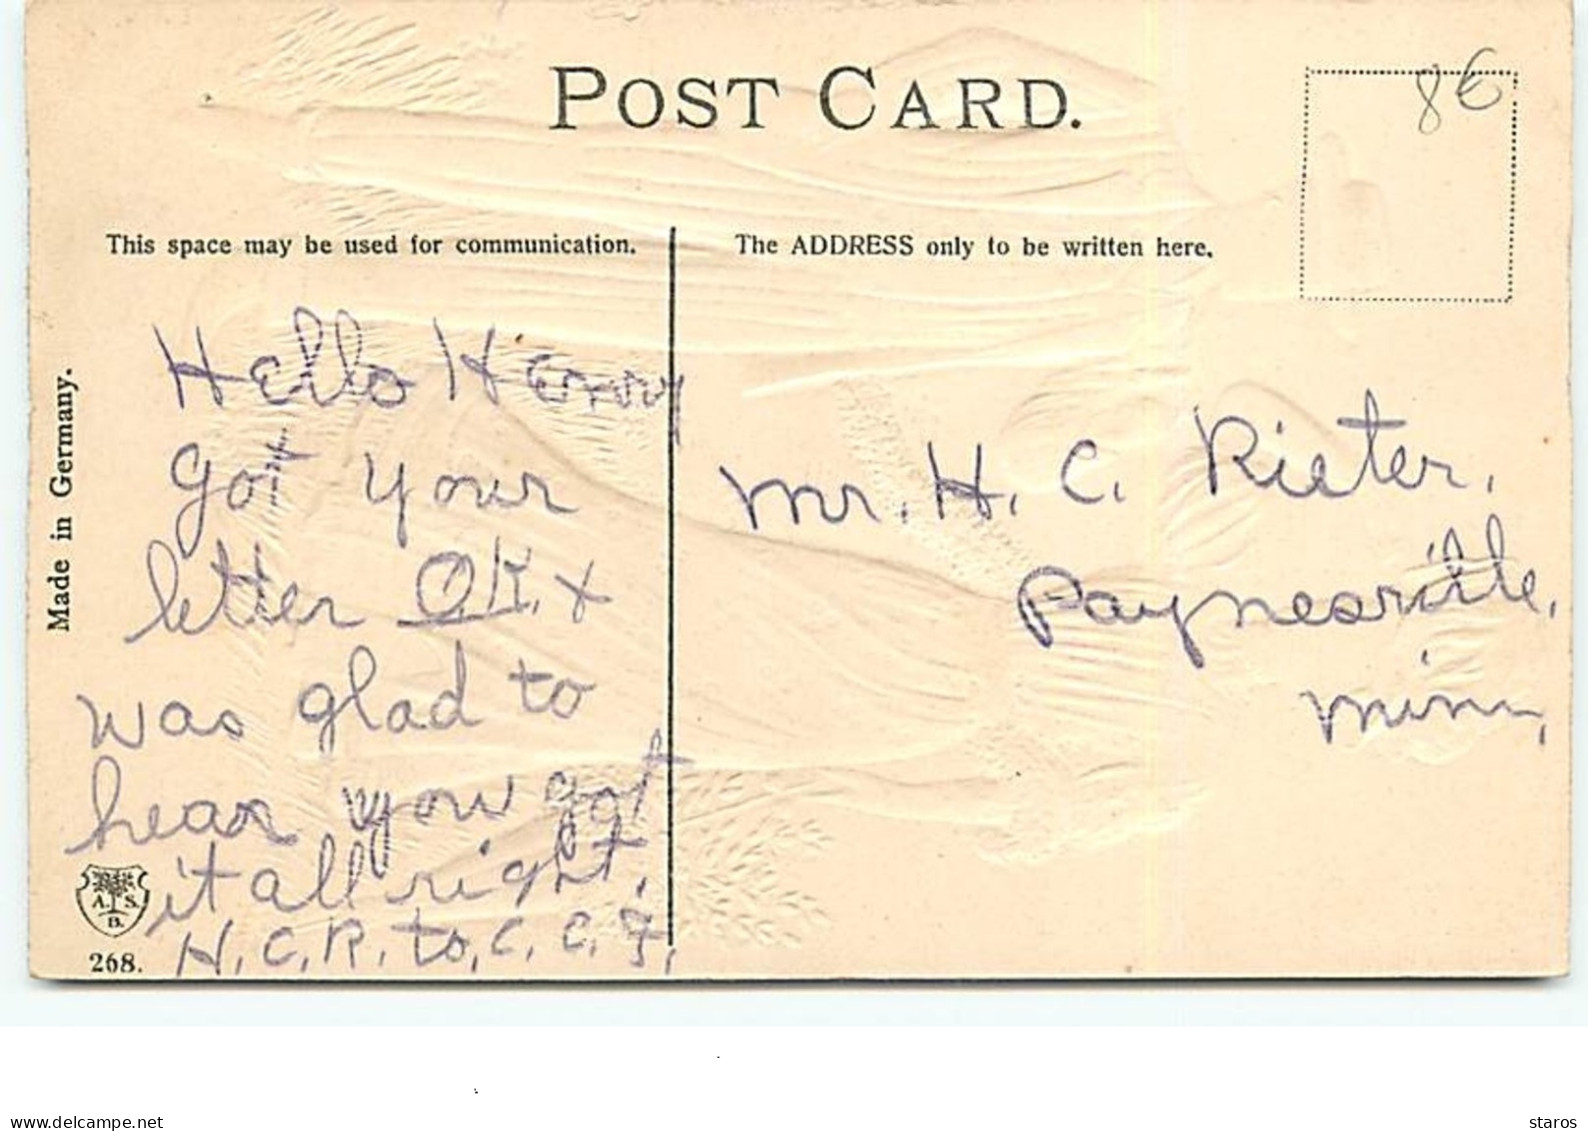 POST CARD.
8€
This space may be used for communication.
The ADDRESS only to be written here.
Made in Germany.
Hello Henry
got your
letter O.K. +
was glad to
hear you got
it all right.
H. C. R. to, C. C. F.
Mr. H. C. Rieter,
Paynesville,
Minn,
A. S.
B.
268.
www.delcampe.net
staros